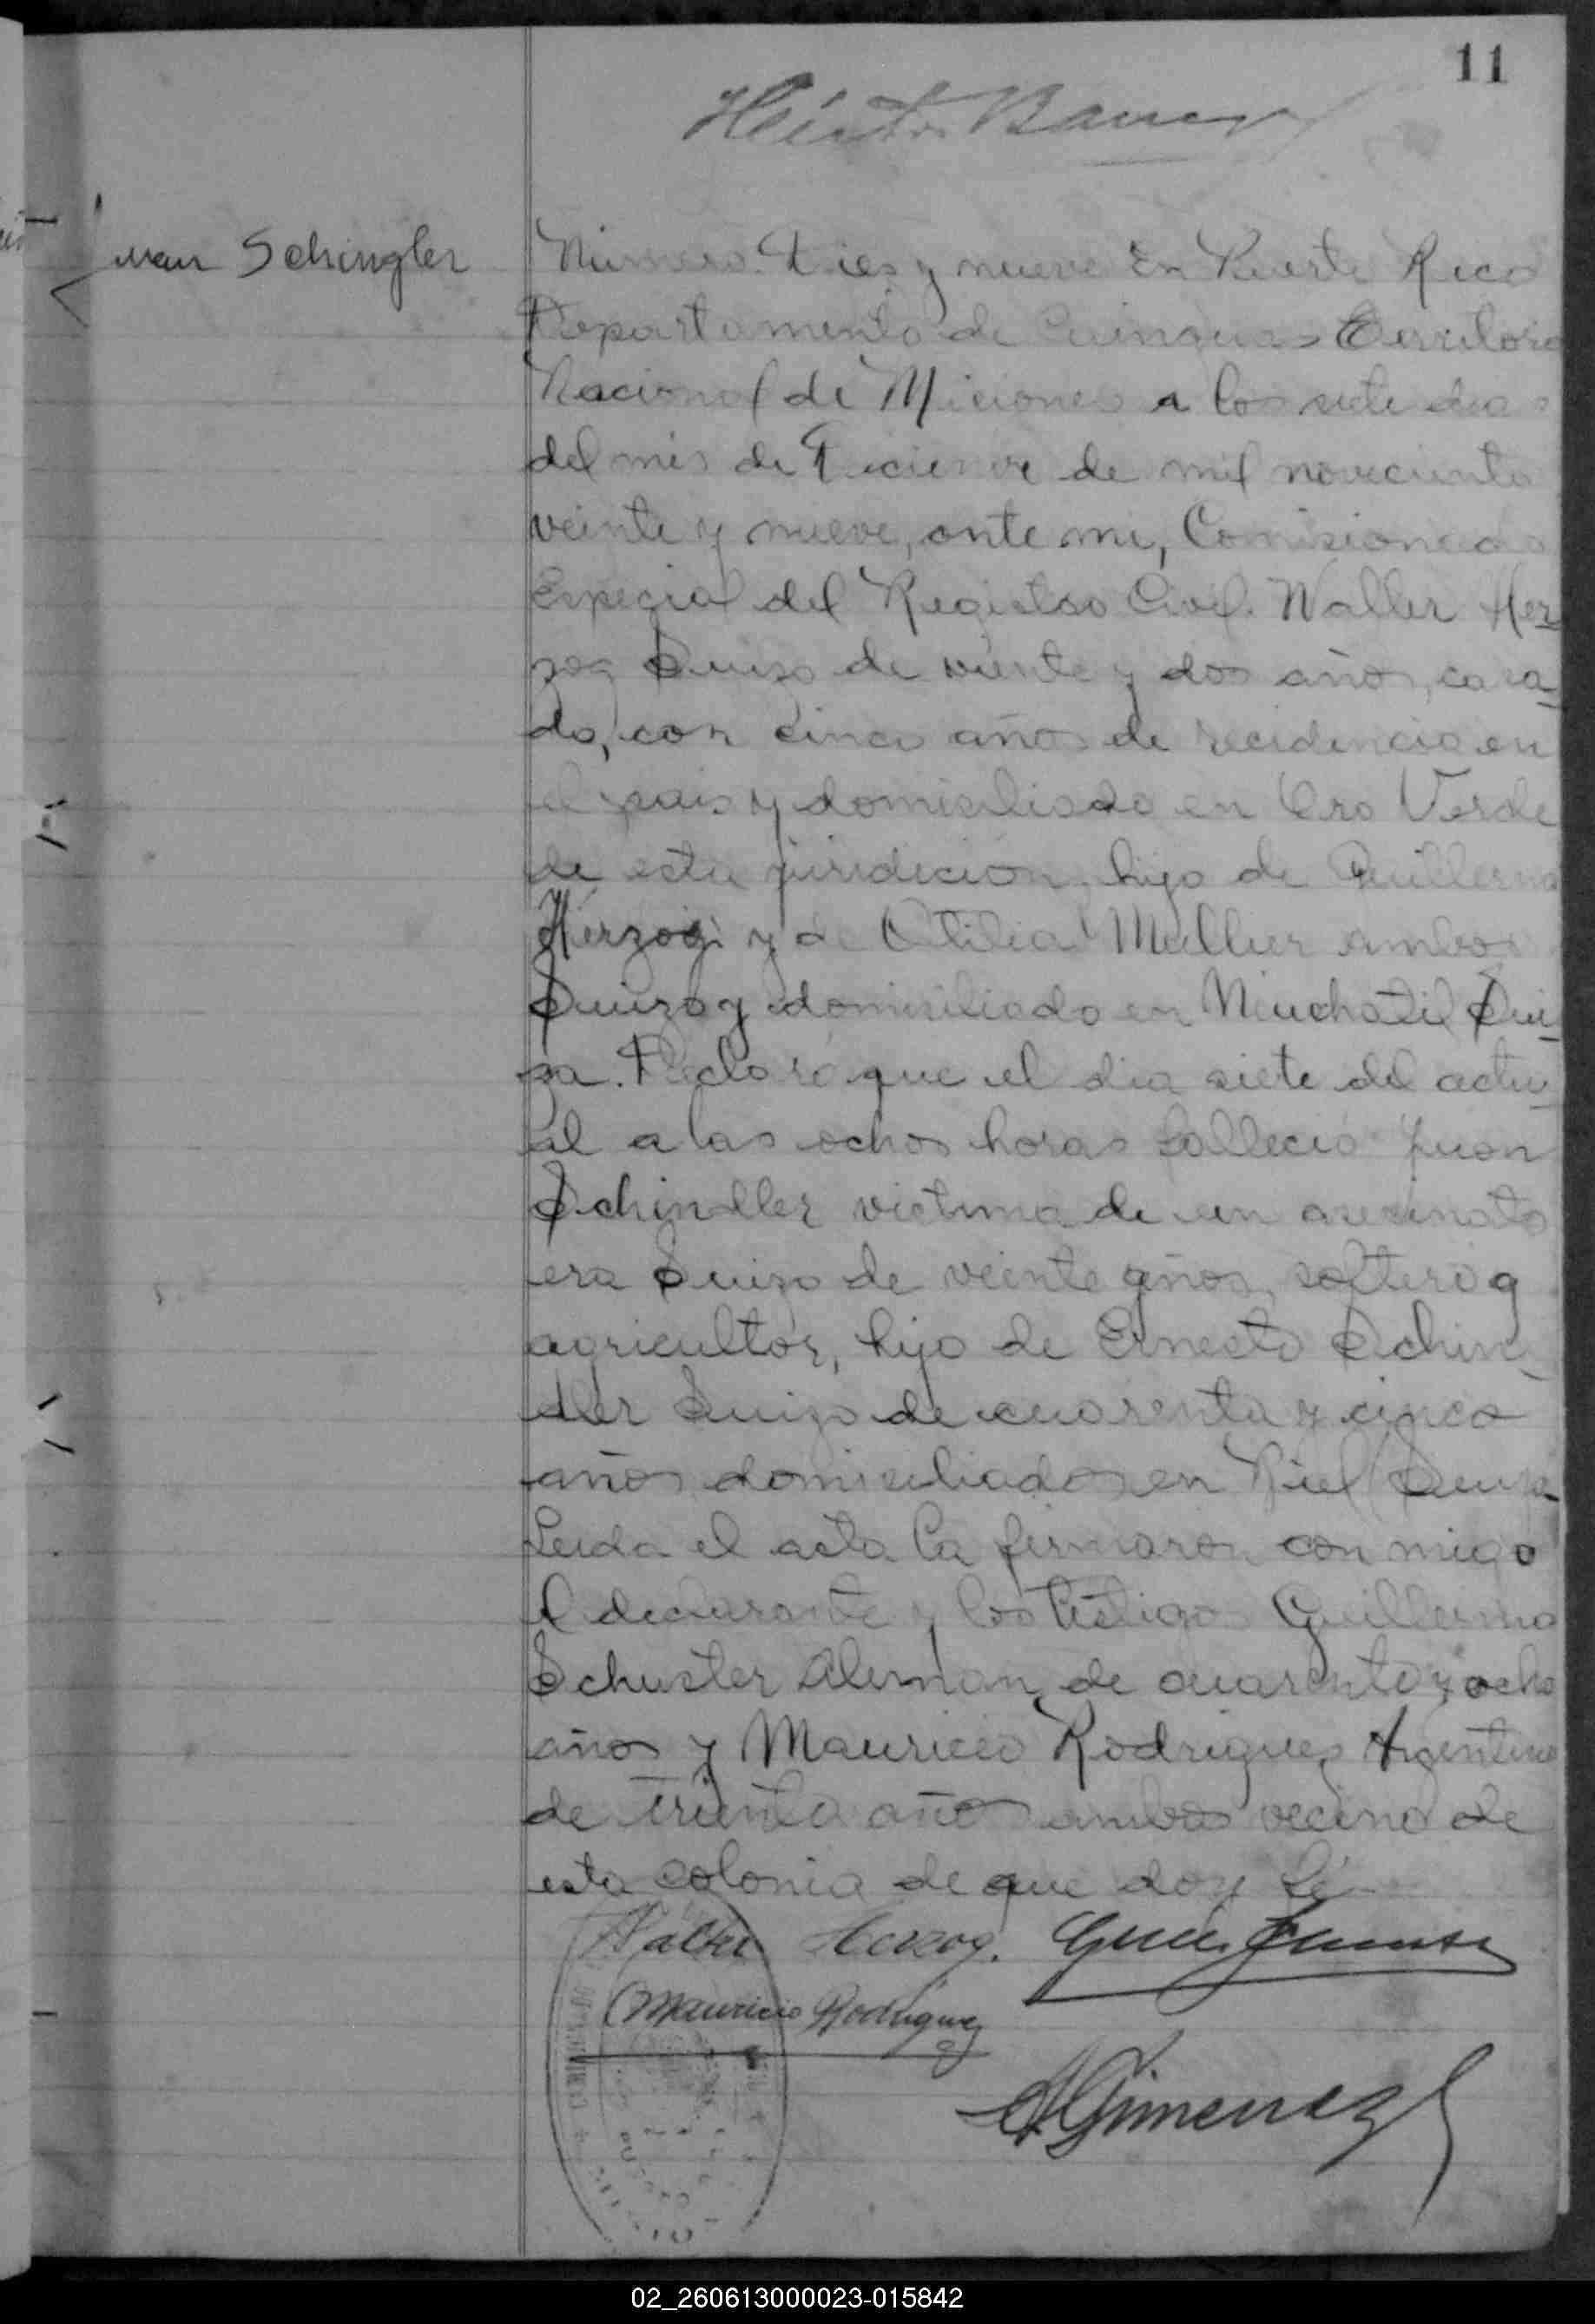 11
Juan Schingler
Número Dies y nueve En Puerto Rico
Departamento de Cainguas Territorio
Nacional de Miciones a los siete dias
del mes de Diciemvre de mil noveciento
veinte y nueve, ante mi, Comisionado
Especial del Registro Civil. Walter Her-
zog Suizo de viente y dos años, casa-
do, con cinco años de recidencia en
el pais y domisiliado en Oro Verde
de esta juridicion, hijo de Guillermo
Herzog y de Otilia Muller ambos
Suizo y domisiliado en Neuchatil Sui-
za. Declaró que el dia siete del actu-
al a las ochos horas falleció Juan
Schindller victima de un asesinato
era Suizo de veinte años, soltero
agricultor, hijo de Ernesto Schin-
dler Suizo de cuarenta y cinco
años domisiliados en Suiza
Leida el acta la firmaron con migo
el declarante y los testigos Guillermo
Schuster Aleman, de cuarenta y ocho
años y Mauricio Rodrigues Argentino
de trienta años ambos vecino de
esta colonia de que doy fé
Walter Herzog.
Mauricio Rodriguez
A Gimenez
02_260613000023-015842